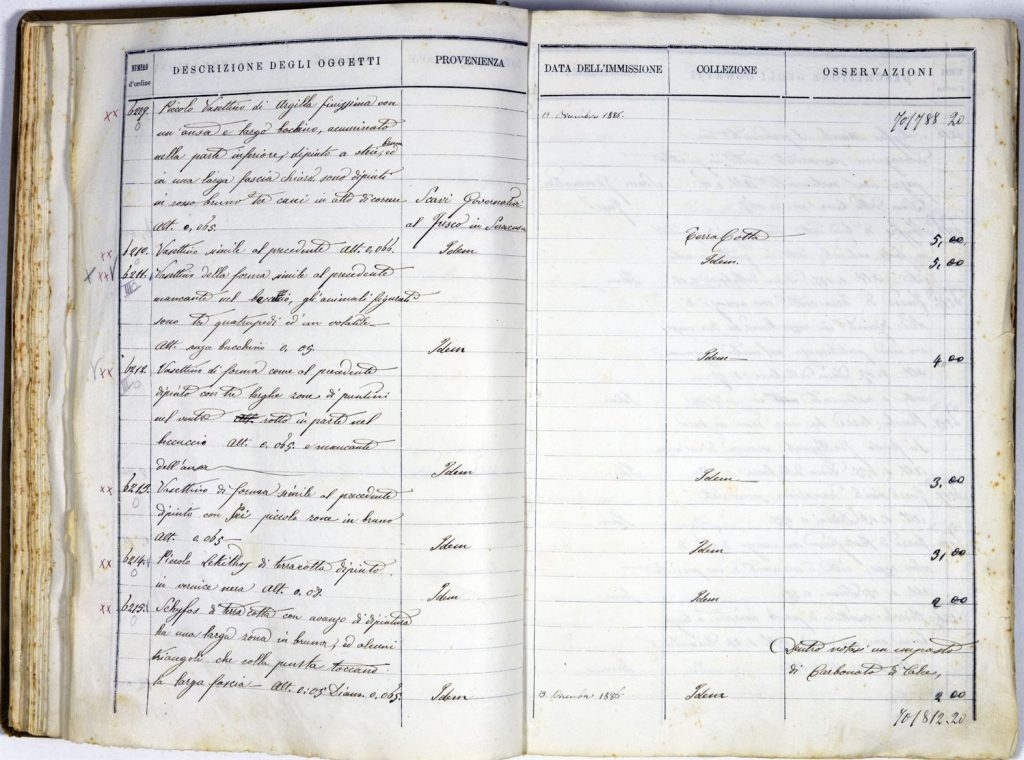 NUMERO d'ordine
DESCRIZIONE DEGLI OGGETTI
PROVENIENZA
DATA DELL'IMMISSIONE
COLLEZIONE
OSSERVAZIONI
xx 6209. Piccolo Vasettino di Argilla finissima con
13 Dicembre 1886.
70/788.20
un'ansa e largo bochino, acuminato
nella parte inferiore, dipinto a
in una larga fascia chiara, sono dipinti
in rosso bruno tre cani in atto di correre
Scavi Governativi
Alt. 0,065.
al Fusco in Siracusa
Terra Cotta
5,00
xx 6210. Vasettino simile al precedente Alt. 0,066.
Idem
Idem.
5,00
xx 6211. Vasettino della forma simile al precedente
mancante nel gli animali figurati
sono tre quatrupedi ed un volatile
Alt. senza bucchino 0,05.
Idem
Idem
4,00
xx 6212. Vasettino di forma come al precedente
dipinto con tre larghe zone di puntini
nel ventre Alt. rotto in parte nel
beccuccio Alt. 0,065. e mancante
dell'ansa
Idem
Idem
3,00
xx 6213. Vasettino di forma simile al precedente
dipinto con Sei piccole zone in bruno
Alt. 0,065
Idem
Idem
3,00
xx 6214. Piccolo Lekithos di terracotta dipinto
in vernice nera Alt. 0,08.
Idem
Idem
2,00
xx 6215. Schyfos di terra cotta con avanzo di dipintura
ha una larga zona in bruno, ed alcuni
Dentro notasi un impasto
triangoli, che colla punta toccano
di Carbonato di Calce,
la larga fascia Alt. 0:05 Diam. 0,065.
Idem
13 Dicembre 1886
Idem
2,00
70/812.20